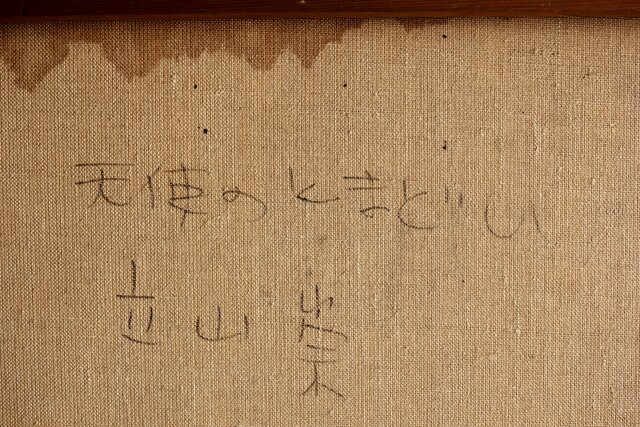 天使のとまどい
立山崇